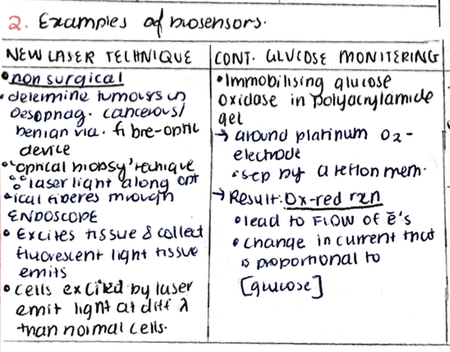 2. Examples of biosensors.
NEW LASER TECHNIQUE
• non surgical
• determine tumours in
oesophag. cancerous/
benign via. fibre-optic
device
• 'optical biopsy' technique
laser light along opt
ical fiberes through
ENDOSCOPE
• Excites tissue & collect
fluorescent light tissue
emits
• cells excited by laser
emit light at diff λ
than normal cells.
CONT. GLUCOSE MONITERING
• Immobilising glucose
oxidase in polyacrylamide
gel
→ around platinum O₂-
electrode
• sep by a teflon mem.
→ Result: Ox-red rxn
• lead to FLOW of ē's
• change in current that
is proportional to
[glucose]